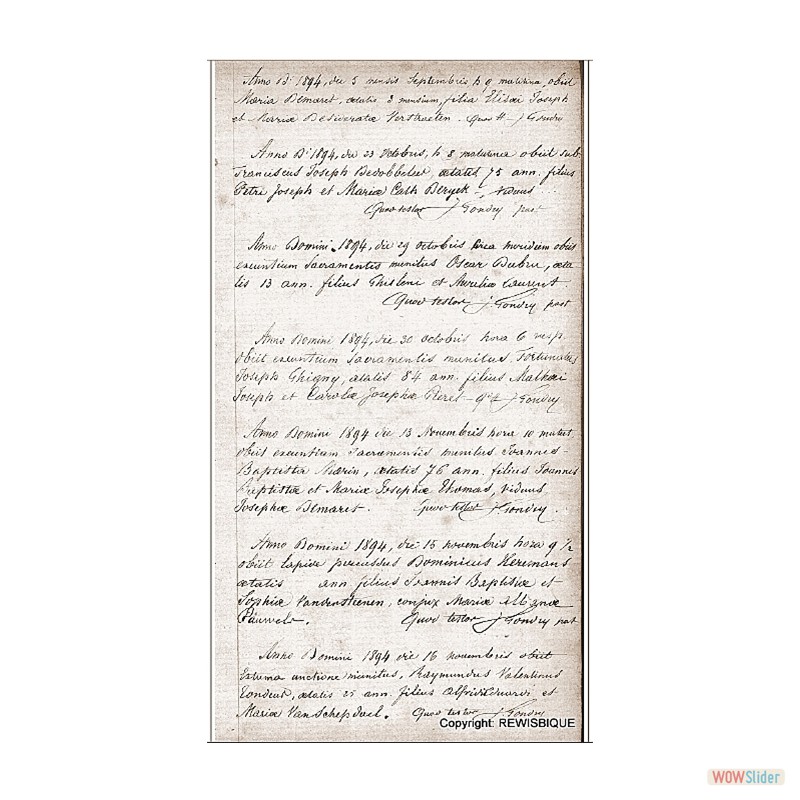 Anno Di 1894, die 5 mensis Septembris, h 9 matutina, obiit
Maria Demaret, aetatis 3 mensium, filia Elisaei Joseph
et Mariae Desiderata Verstraeten. Quod t J Gondry
Anno Di 1894, die 23 Octobris, h 8 matutina obiit sub.
Franciscus Joseph Dedobbeleer aetatis 75 ann. filius
Petri Joseph et Mariae Cath Beryck, viduus
Quod testor J Gondry past
Anno Domini 1894, die 29 octobris circa meridiem obiit
exeuntium Sacramentis munitus Oscar Dubru, aeta
tis 13 ann. filius Ghisleni et Aurelia Laurent
Quod testor J Gondry past
Anno Domini 1894, die 30 octobris hora 6 vesp.
obiit exeuntium Sacramentis munitus, Fortunatus
Joseph Ghigny, aetatis 84 ann. filius Mathaei
Joseph et Carolae Josephae Piret - J Gondry
Anno Domini 1894 die 13 Novembris hora 10 matut
obiit exeuntium Sacramentis munitus Joannes
Baptista Marin, aetatis 76 ann. filius Joannis
Baptistae et Mariae Josephae Thomas, viduus
Josephae Demaret. Quod testor J Gondry.
Anno Domini 1894, die 15 novembris hora 9 1/2
obiit lapide percussus Dominicus Heremans
aetatis ann. filius Joannis Baptistae et
Sophiae Vandenstienen, conjux Mariae Albinae
Pauwels. Quod testor J Gondry past
Anno Domini 1894 die 16 novembris obiit
Extrema unctione munitus, Raymundus Valentinus
aetatis 25 ann. filius Alfridi Eduardi et
Mariae VanSchepdael. Quod testor J Gondry
Copyright: REWISBIQUE
WOWSlider